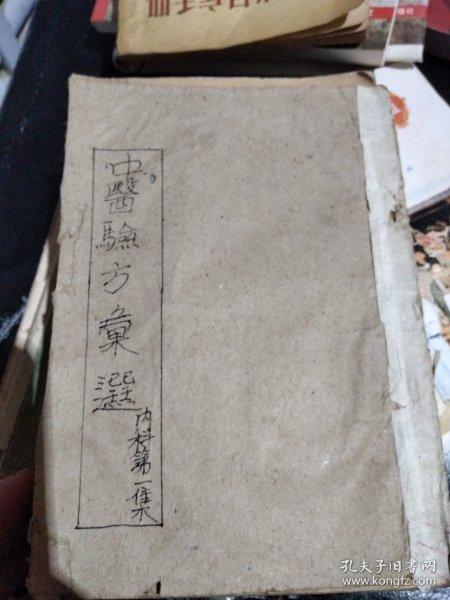 中醫驗方彙選
内科第一集
孔夫子旧书网
www.kongfz.com